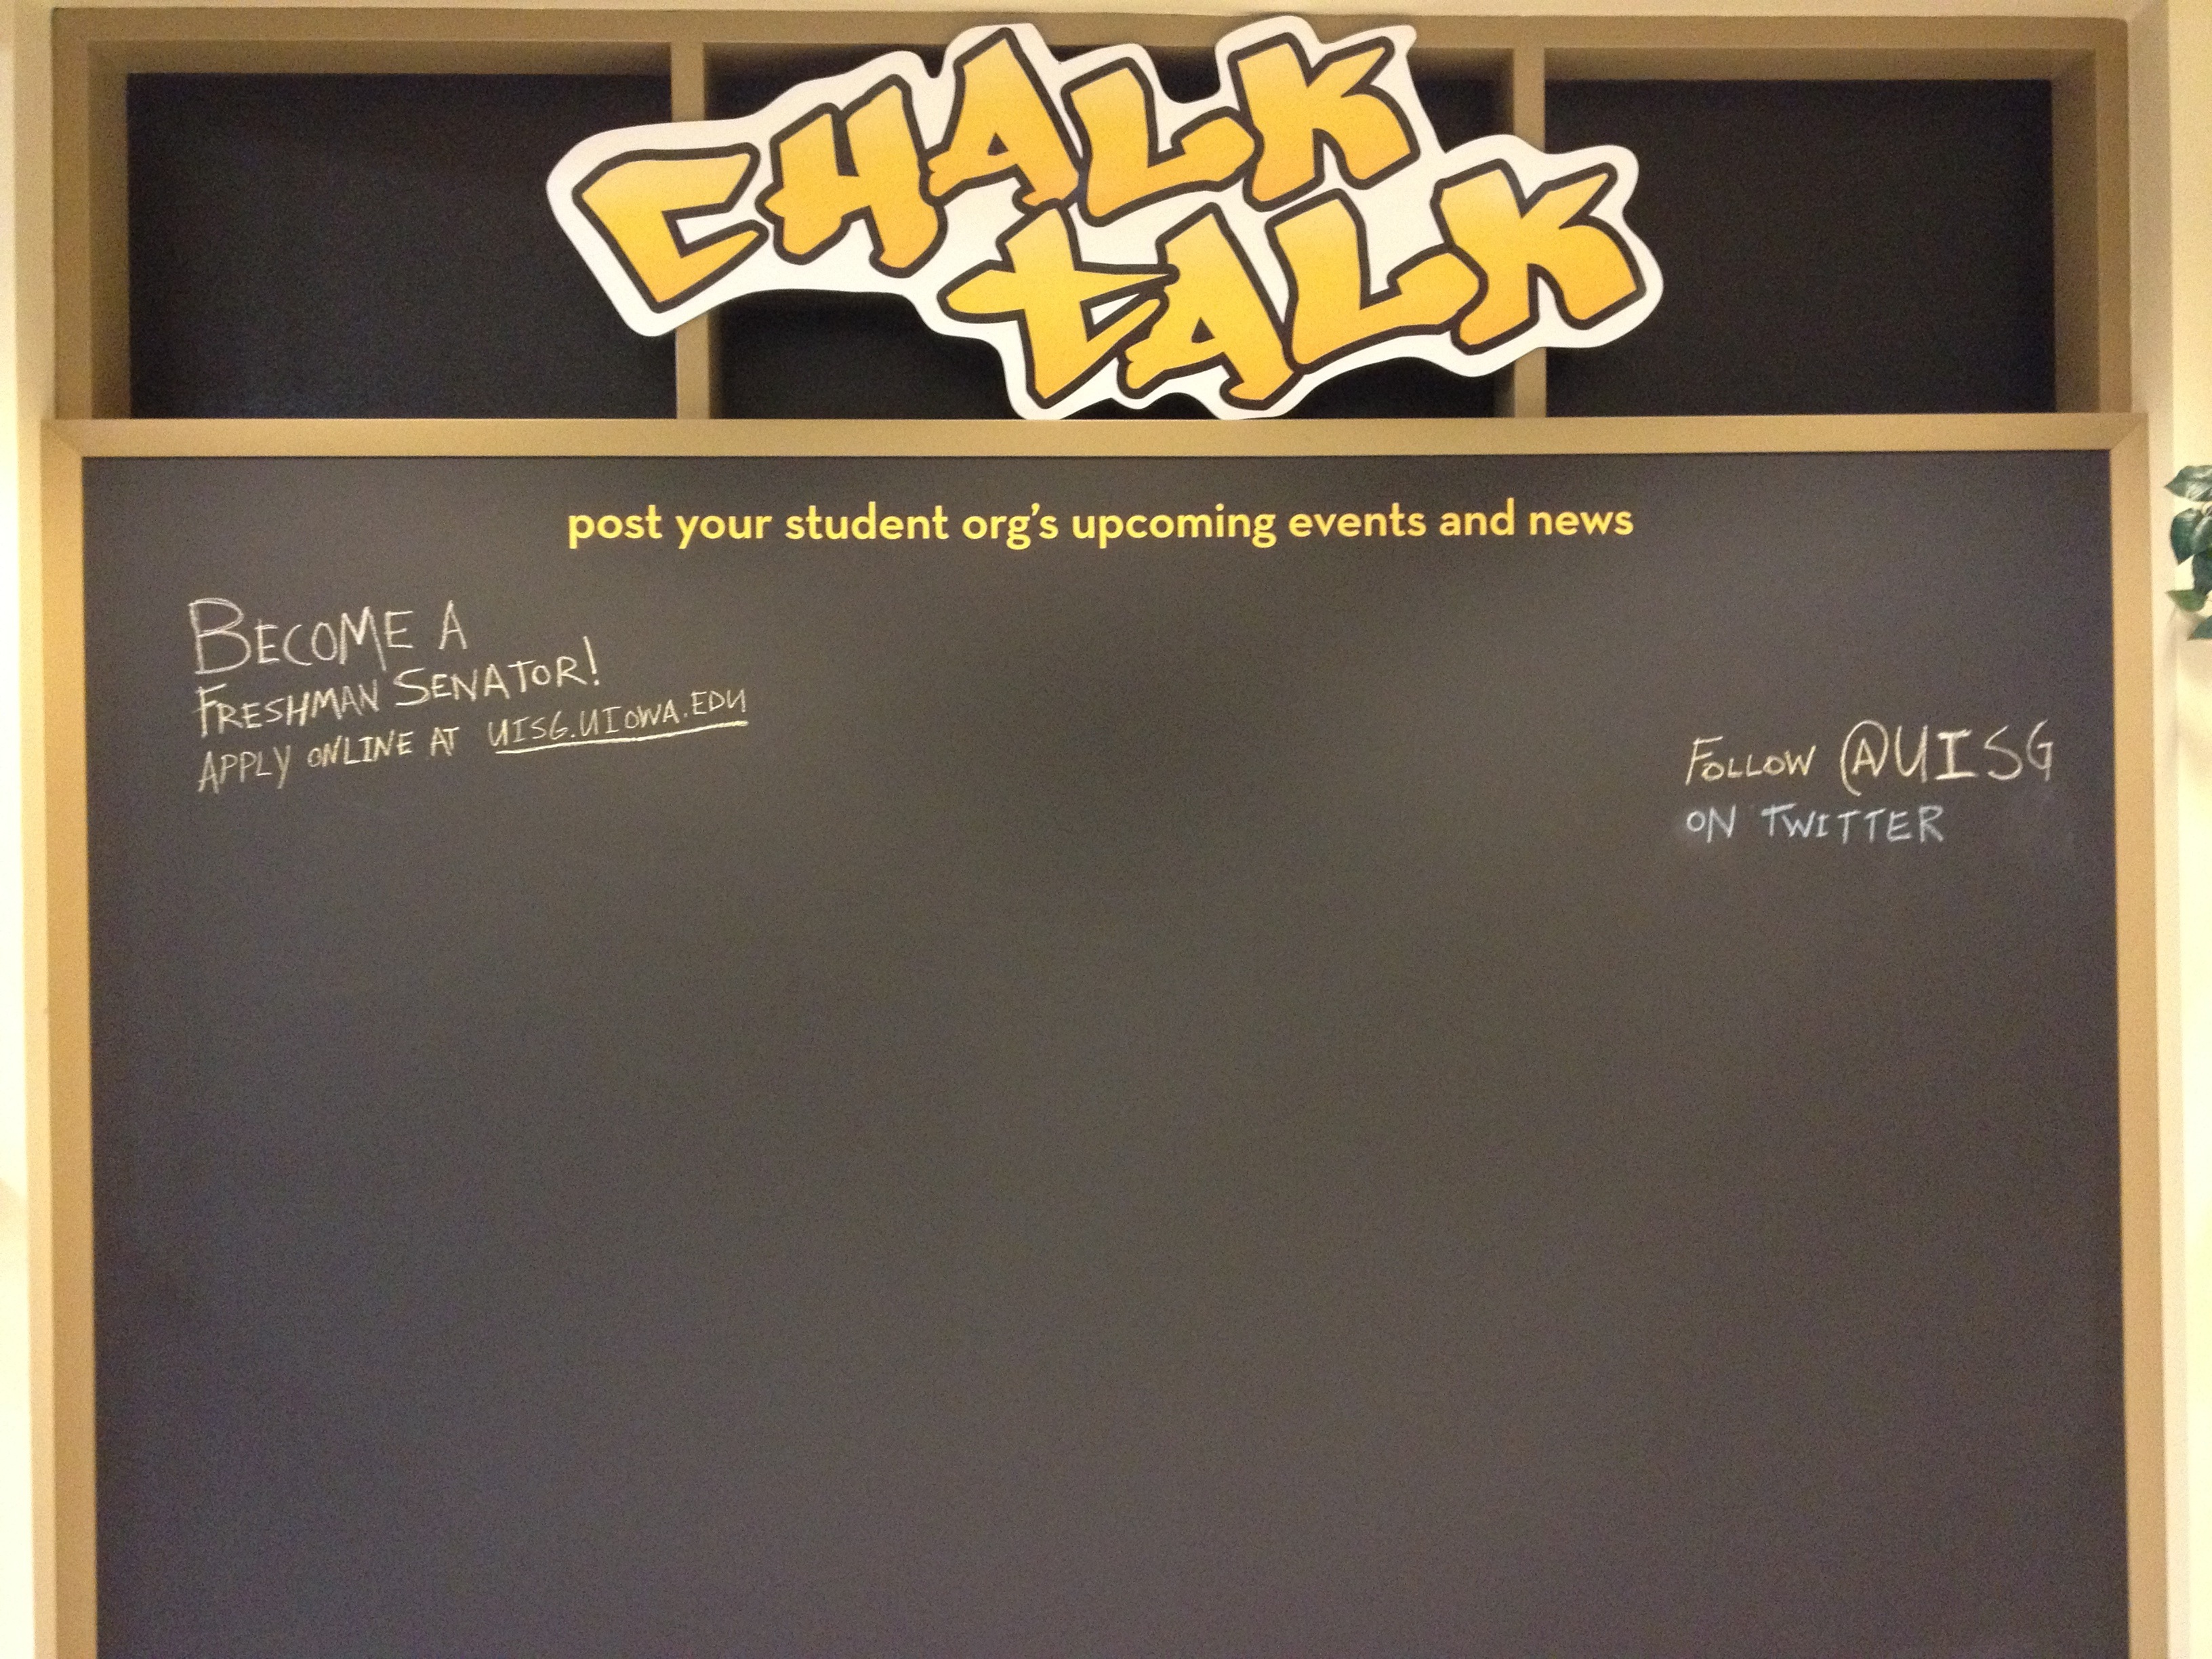 CHALK
tALK
post your student org's upcoming events and news
BECOME A
FRESHMAN SENATOR!
APPLY ONLINE AT UISG.UIOWA.EDU
FOLLOW @UISG
ON TWITTER